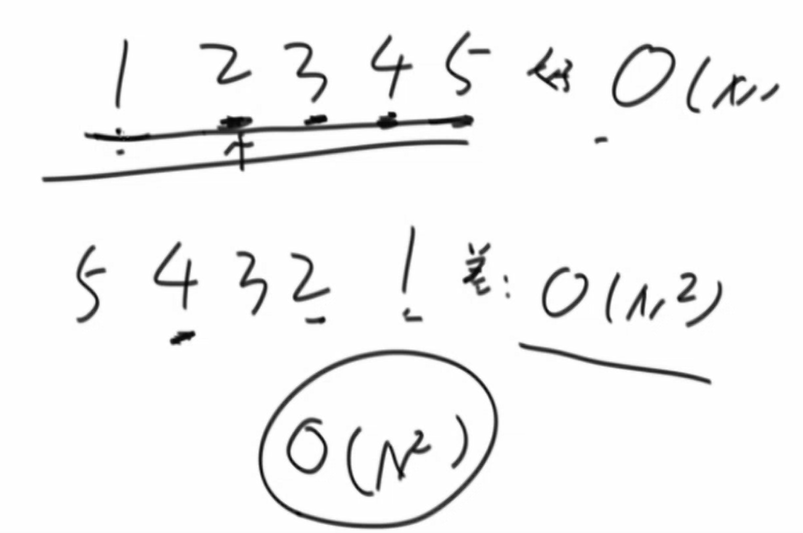 1 2 3 4 5 好 O(N)
5 4 3 2 1 差: O(N²)
O(N²)